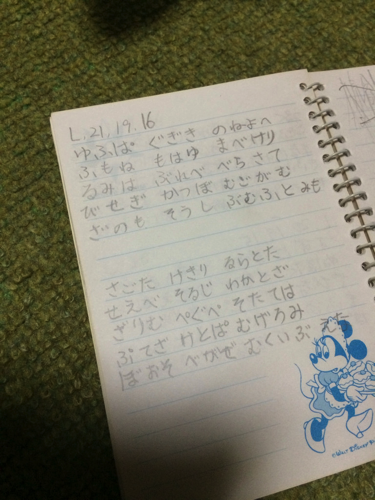 L.21.19.16
ゆふぱ ぐぎき のねよへ
ふもね もはゆ まべけり
るみは ぶれべ べちさて
びせぎ かつぼ むごがむ
ざのも そうし ぶむふと みも
さごた けきり るらとた
せえべ そるじ わかとざ
ざりむ ぺぐべ そたては
ぷてざ けとぱ むげろみ
ぼおそ べがぜ むくいぶ えた